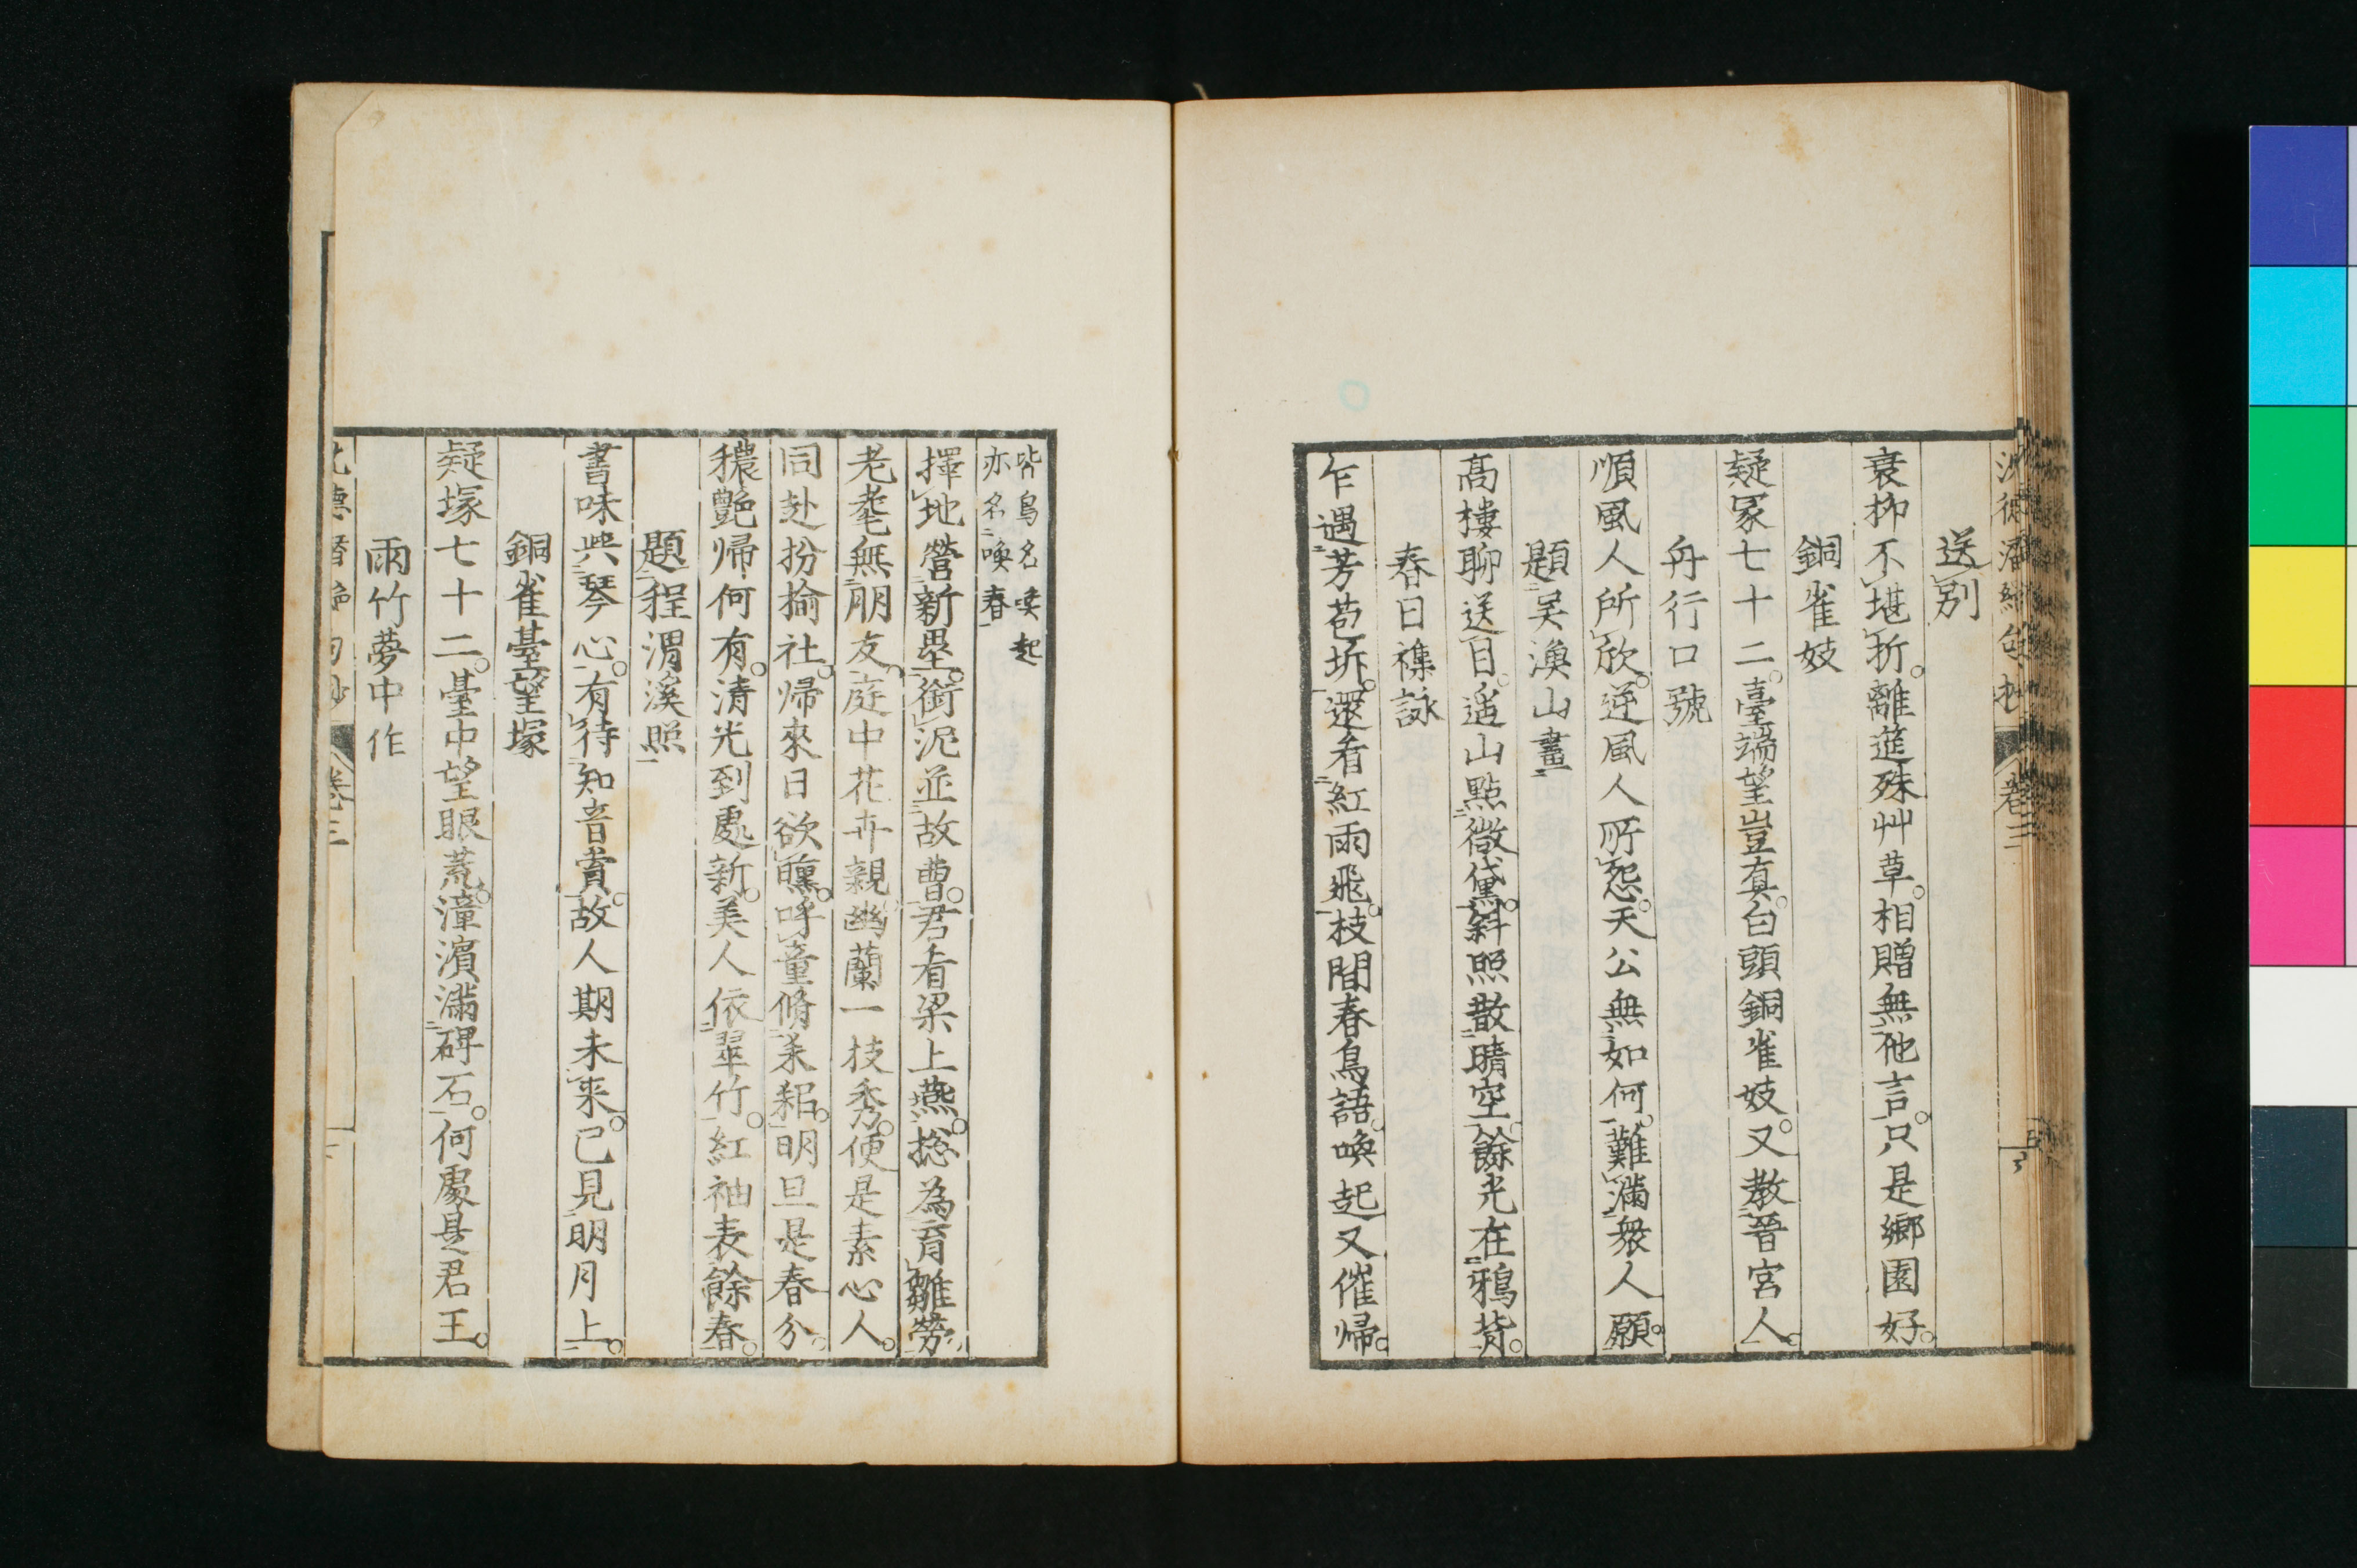 送別
衰柳不堪折。離筵殊艸草。相贈無他言。只是鄉園好。
銅雀妓
疑冢七十二。臺端望豈真。白頭銅雀妓。又教晉宮人。
舟行口號
順風人所欣。逆風人所怨。天公無如何。難滿衆人願。
題吴漁山畫
高樓聊送目。遥山點微黛。斜照散晴空。餘光在鴉背。
春日襍詠
乍遇芳苞坼。還看紅雨飛。枝間春鳥語。喚起又催帰。
皆鳥名喚起
亦名喚春
擇地營新壘。銜泥並故曹。君看梁上燕。捴為育雛勞。
老耄無朋友。庭中花卉親。幽蘭一枝秀。便是素心人。
同赴枌揄社。帰來日欲曛。呼童脩耒耜。明旦是春分。
穠艶帰何有。清光到處新。美人依翠竹。紅袖表餘春。
題程渭溪照
書味與琴心。有待知音賞。故人期未来。已見明月上。
銅雀臺望塚
疑塚七十二。臺中望眼荒。漳濱滿碑石。何處是君王。
雨竹夢中作
卷三